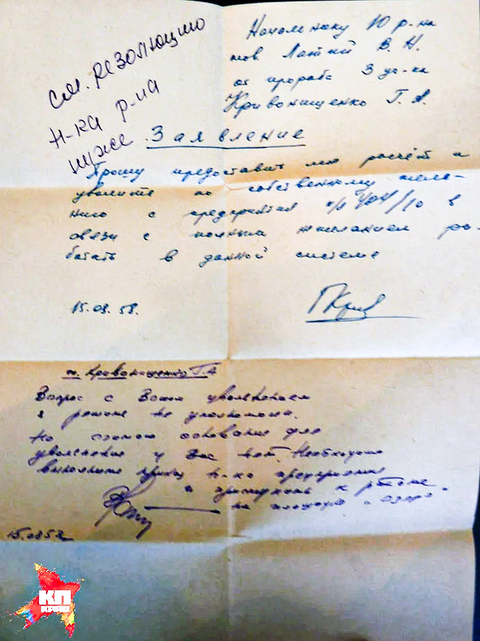 см. резолюцию
н-ка р-на
ниже.
Начальнику 10 р-на
тов Латий В. Н.
от прораба 3 уч-ка
Кривонищенко Г. А
Заявление
Прошу предоставить мне расчёт и
уволить по собственному жела-
нию с предприятия п/я 404/10 в
связи с желанием ра-
ботать в данной системе
15.09.58.
ГКрив
т. Кривонищенко Г.А
Вопрос с Вашим увольнением
я решать не уполномочен.
Но считаю основание для
увольнения у Вас нет. Необходимо
выполнить приказ н-ка предприятия
и приступить к работе
на площадке
КП
KP.RU